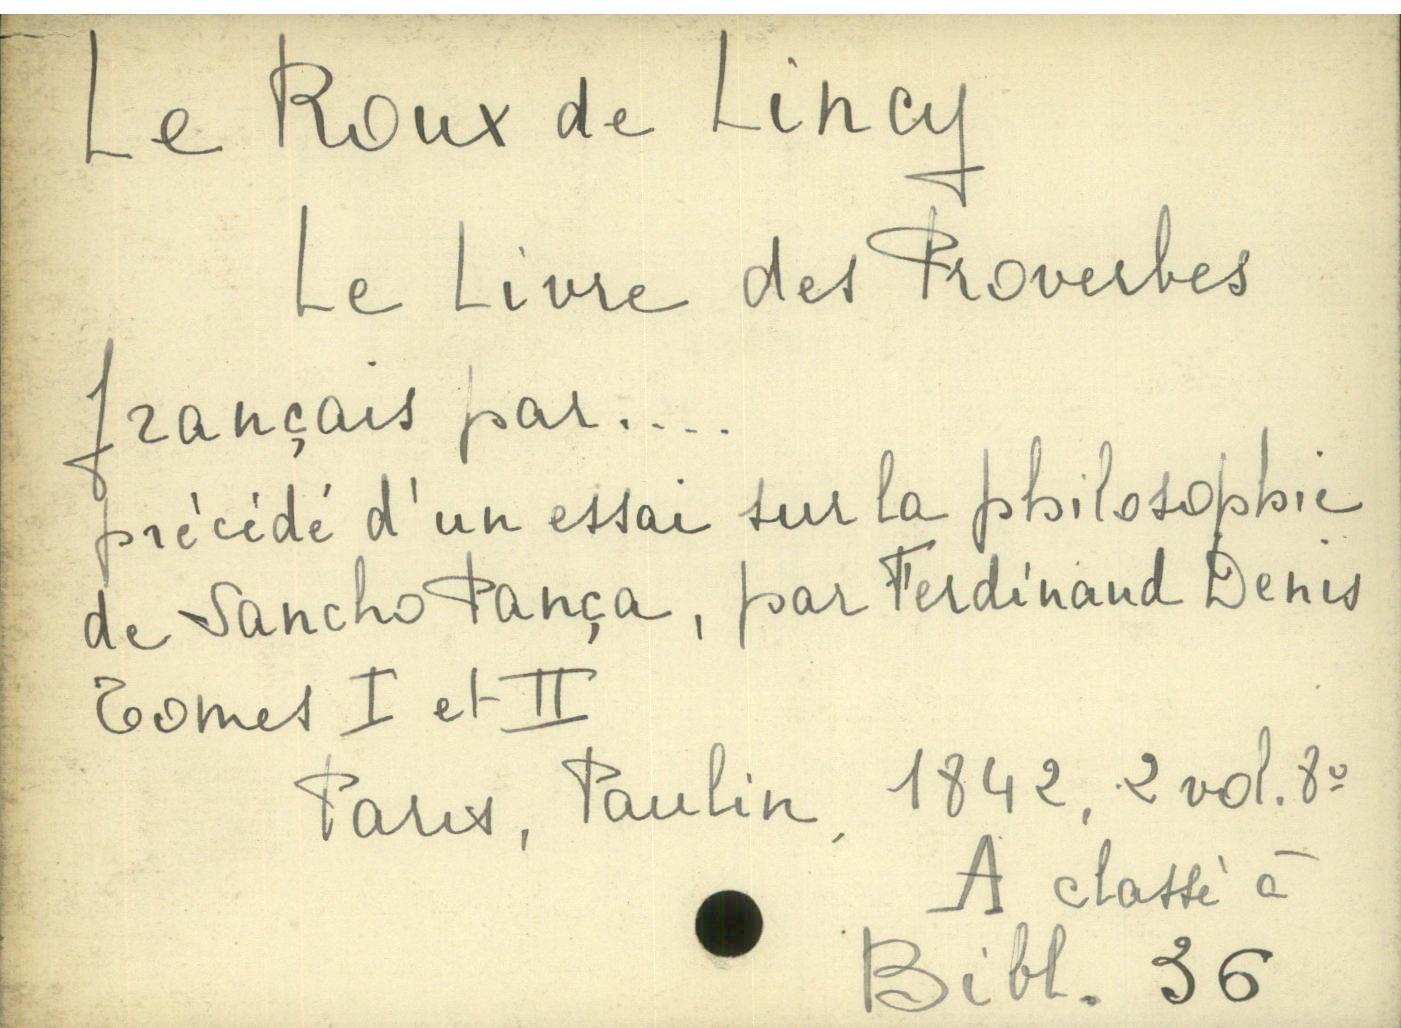 Le Roux de Lincy
Le Livre des Proverbes
français par....
précédé d'un essai sur la philosophie
de Sancho Pança, par Ferdinand Denis
Tomes I et II
Paris, Paulin, 1842, 2 vol. 8º
A classé à
Bibl. 36